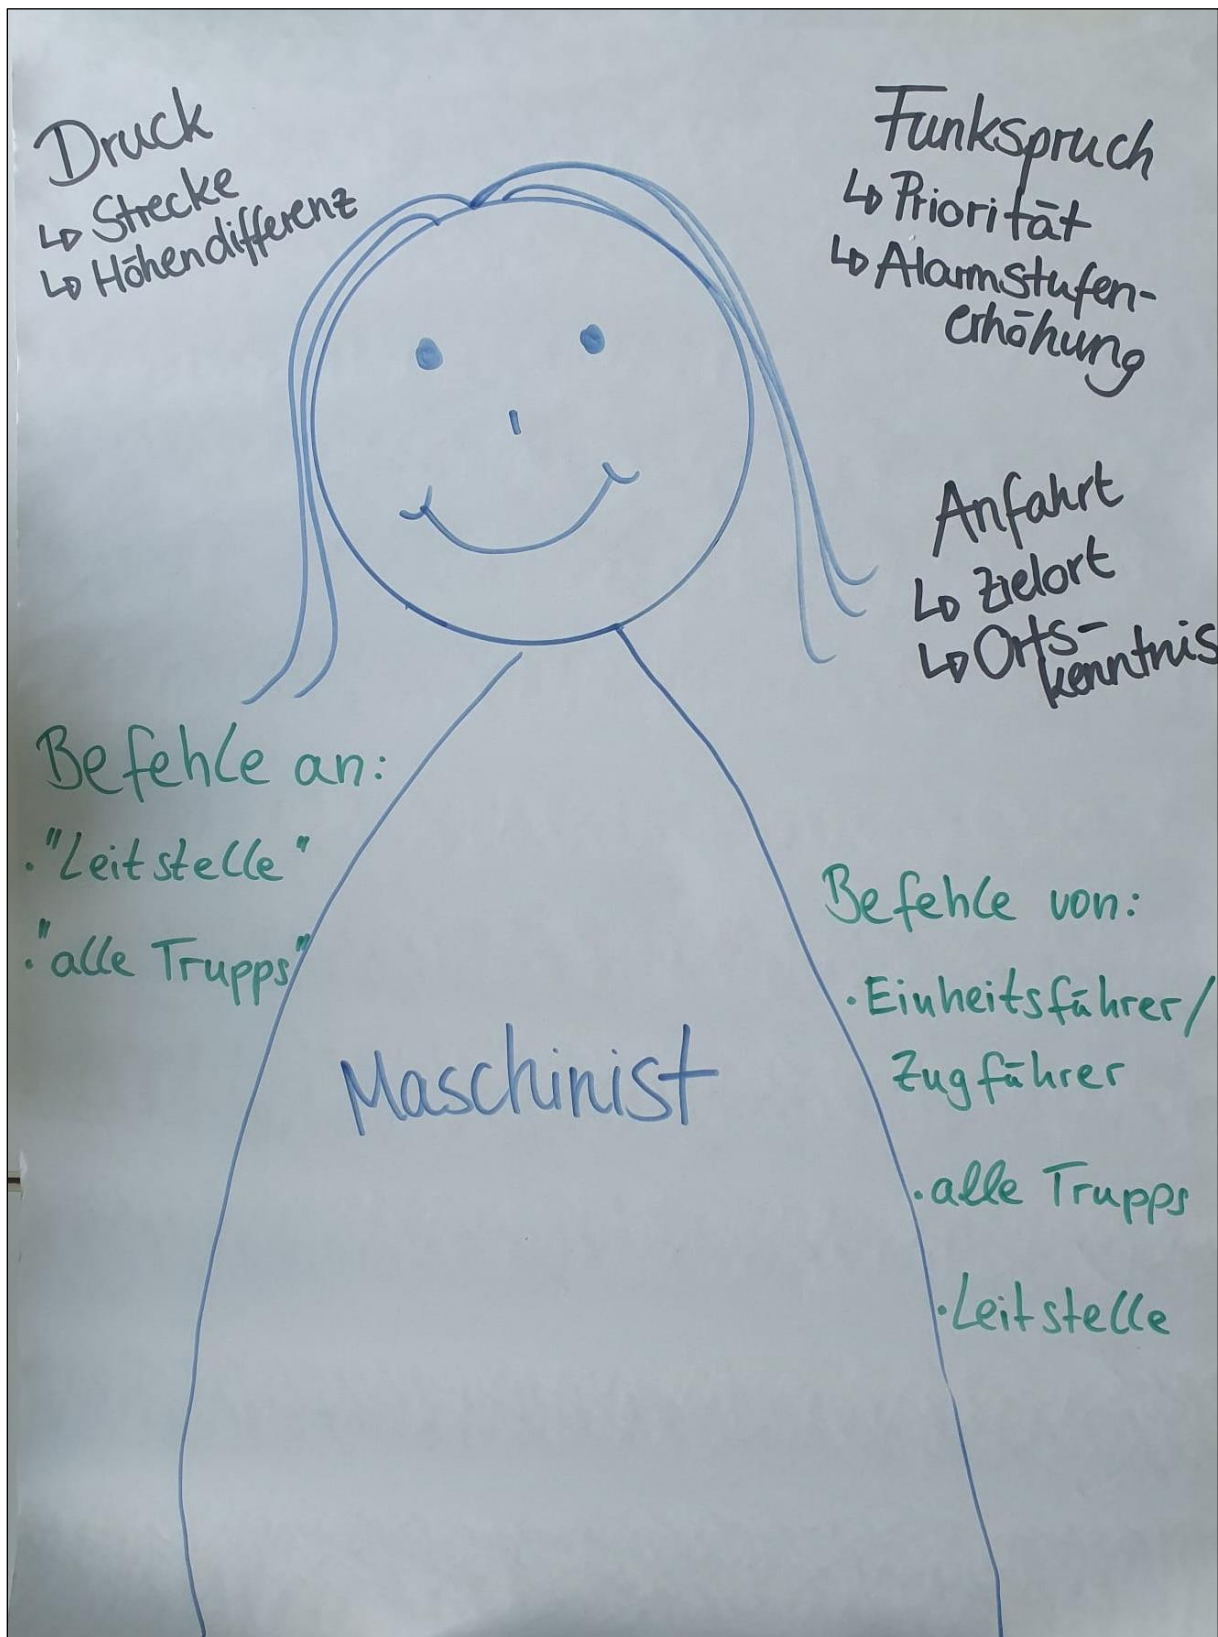 Druck
↳ Strecke
↳ Höhendifferenz
Funkspruch
↳ Priorität
↳ Alarmstufen-
erhöhung
Anfahrt
↳ Zielort
↳ Orts-
kenntnis
Befehle an:
• "Leitstelle"
• "alle Trupps"
Befehle von:
• Einheitsführer/
Zugführer
• alle Trupps
• Leitstelle
Maschinist